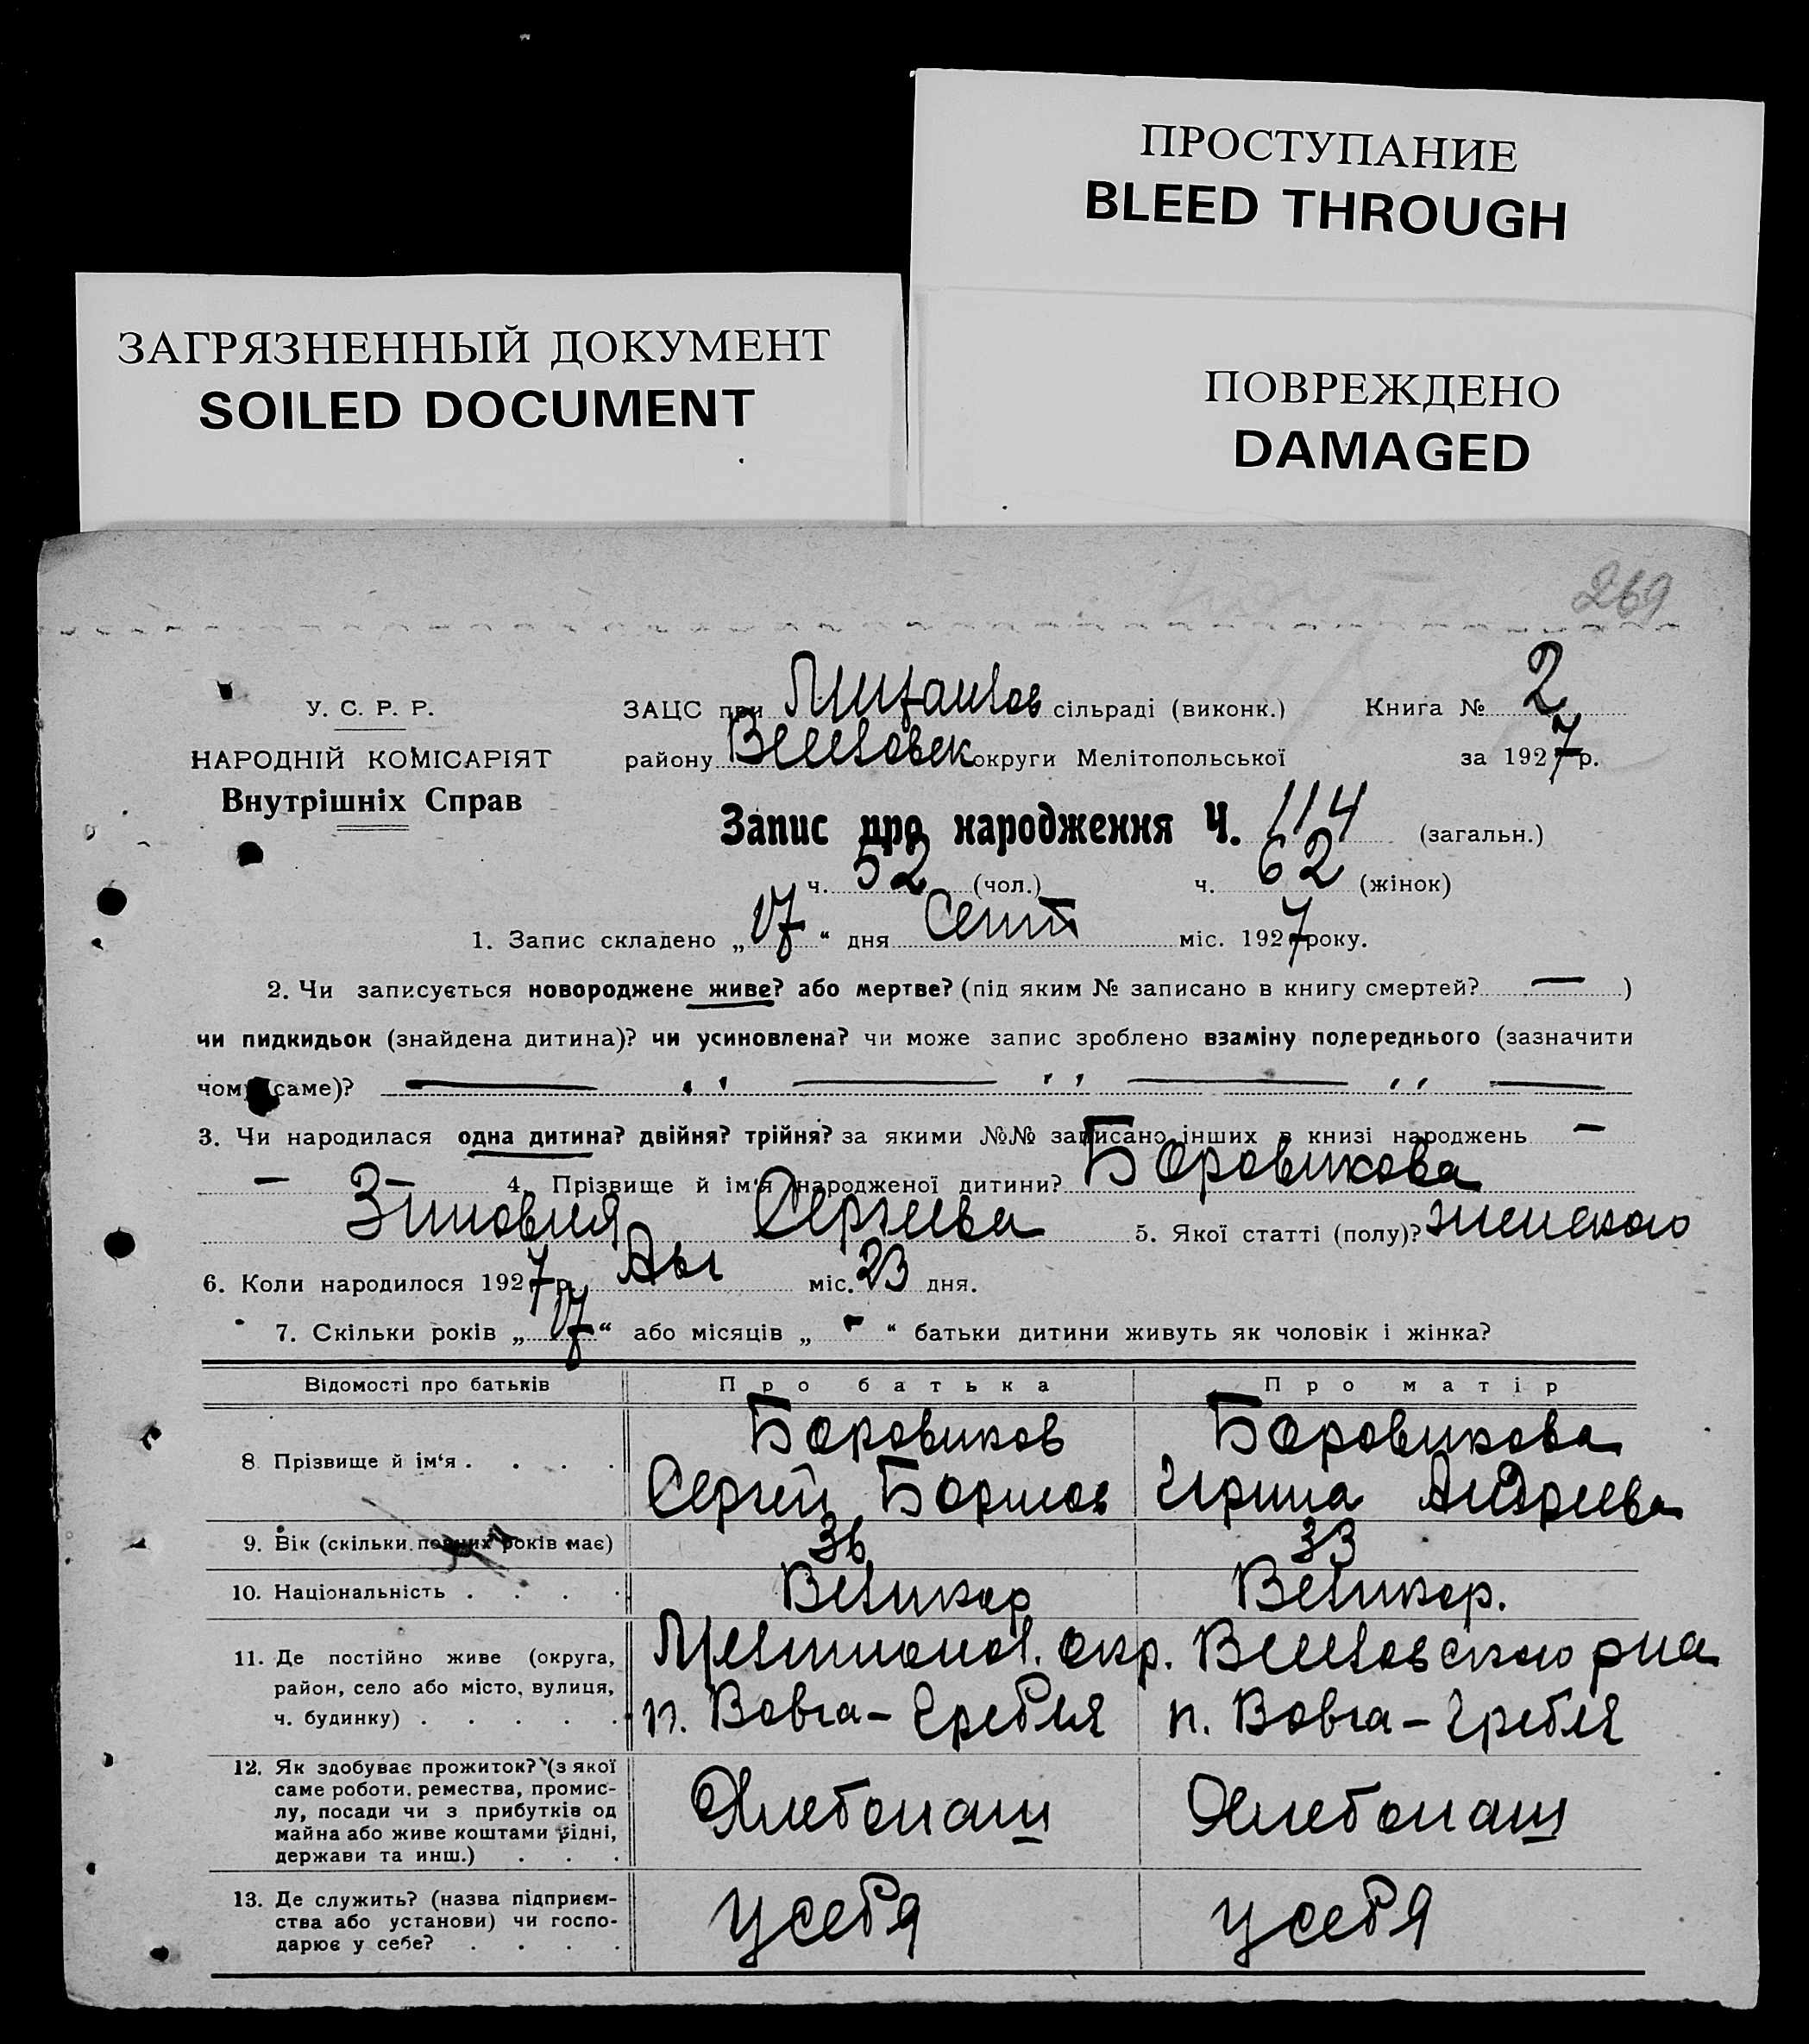 ПРОСТУПАНИЕ
BLEED THROUGH
ЗАГРЯЗНЕННЫЙ ДОКУМЕНТ
SOILED DOCUMENT
ПОВРЕЖДЕНО
DAMAGED
269
У. С. Р. Р.
НАРОДНІЙ КОМІСАРІЯТ
Внутрішніх Справ
ЗАЦС при сільраді (виконк.) Книга № 2
району Веселовск округи Мелітопольської за 1927 р.
Запис про народження Ч. 114 (загальн.)
ч. 52 (чол.) ч. 62 (жінок)
1. Запис складено „17“ дня Сент міс. 1927 року.
2. Чи записується новороджене живе? або мертве? (під яким № записано в книгу смертей? — )
чи пидкидьок (знайдена дитина)? чи усиновлена? чи може запис зроблено взаміну попереднього (зазначити
чому саме)? — „ — „ — „ —
3. Чи народилася одна дитина? двійня? трійня? за якими №№ записано інших в книзі народжень —
— 4. Прізвище й ім'я народженої дитини? Боровикова
Зиновия Сергеева 5. Якої статті (полу)? женского
6. Коли народилося 1927 р. Авг міс. 23 дня.
7. Скільки років „17“ або місяців „-“ батьки дитини живуть як чоловік і жінка?
Відомості про батьків Про батька Про матір
8 Прізвище й ім‘я . . . . Боровиков Боровикова
Сергей Борисов Ирина Андреева
9. Вік (скільки повних років має) 36 33
10. Національність . . . . Великор Великор.
11. Де постійно живе (округа, район, село або місто, вулиця, ч. будинку) . . . . . Мелитопол. окр. Веселовского р-на
п. Вовча-Гребля п. Вовча-Гребля
12. Як здобуває прожиток? (з якої
саме роботи, ремества, промис-
лу, посади чи з прибутків од
майна або живе коштами рідні,
держави та инш.) . . . Хлебопаш Хлебопаш
13. Де служить? (назва підприєм-
ства або установи) чи госпо-
дарює у себе? . . . . у себя у себя